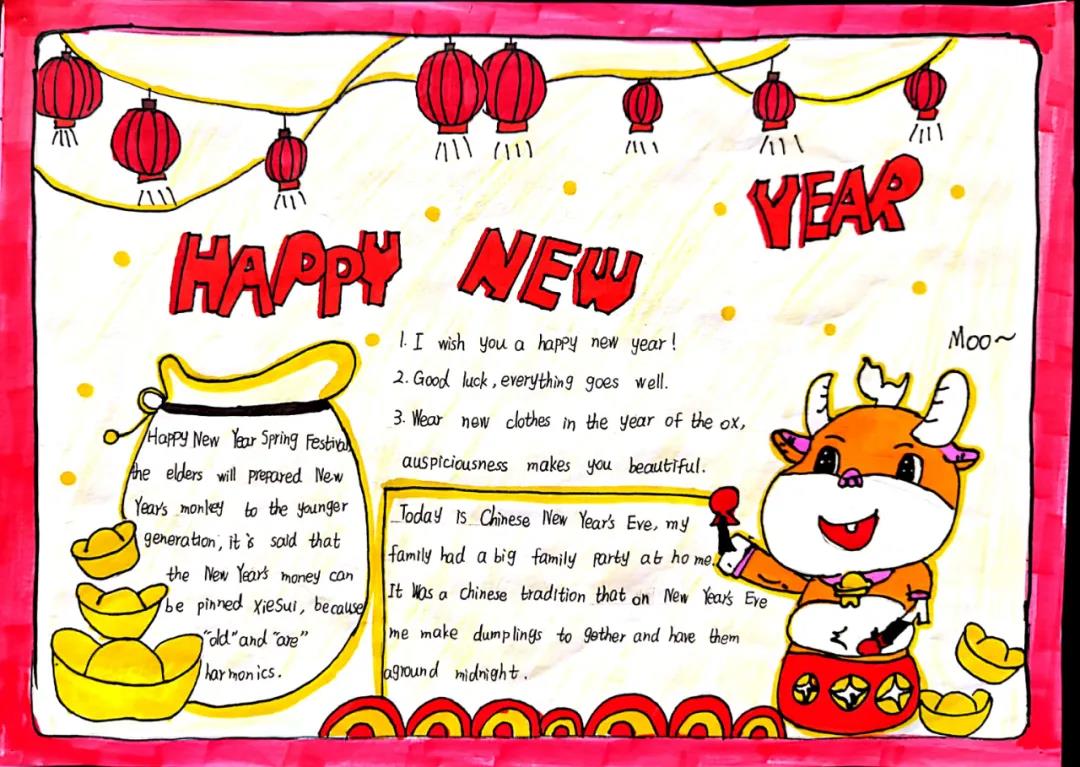 HAPPY NEW YEAR
1. I wish you a happy new year!
2. Good luck, everything goes well.
3. Wear new clothes in the year of the ox,
auspiciousness makes you beautiful.
Moo~
Happy New Year Spring Festival,
the elders will prepared New
Year's monkey to the younger
generation, it is said that
the New Year's money can
be pinned XieSui, because
"old" and "are"
harmonics.
Today is Chinese New Year's Eve, my
family had a big family party at home.
It Was a chinese tradition that on New Year's Eve
me make dumplings to gether and have them
aground midnight.